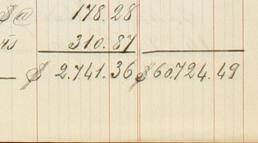 $@ 178.28
310.87
$ 2.741.36 $60.724.49